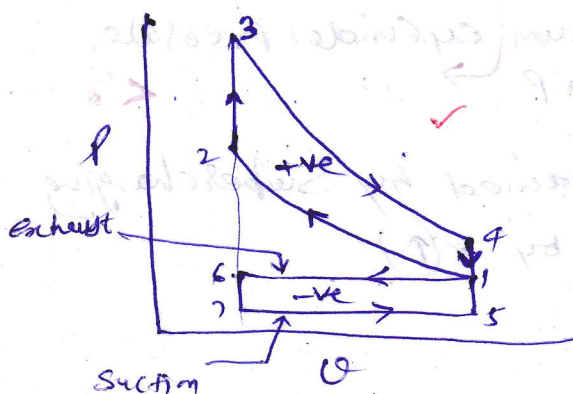 3
P
2
+ve
4
Exhaust
6
1
-ve
7
5
Suction
v